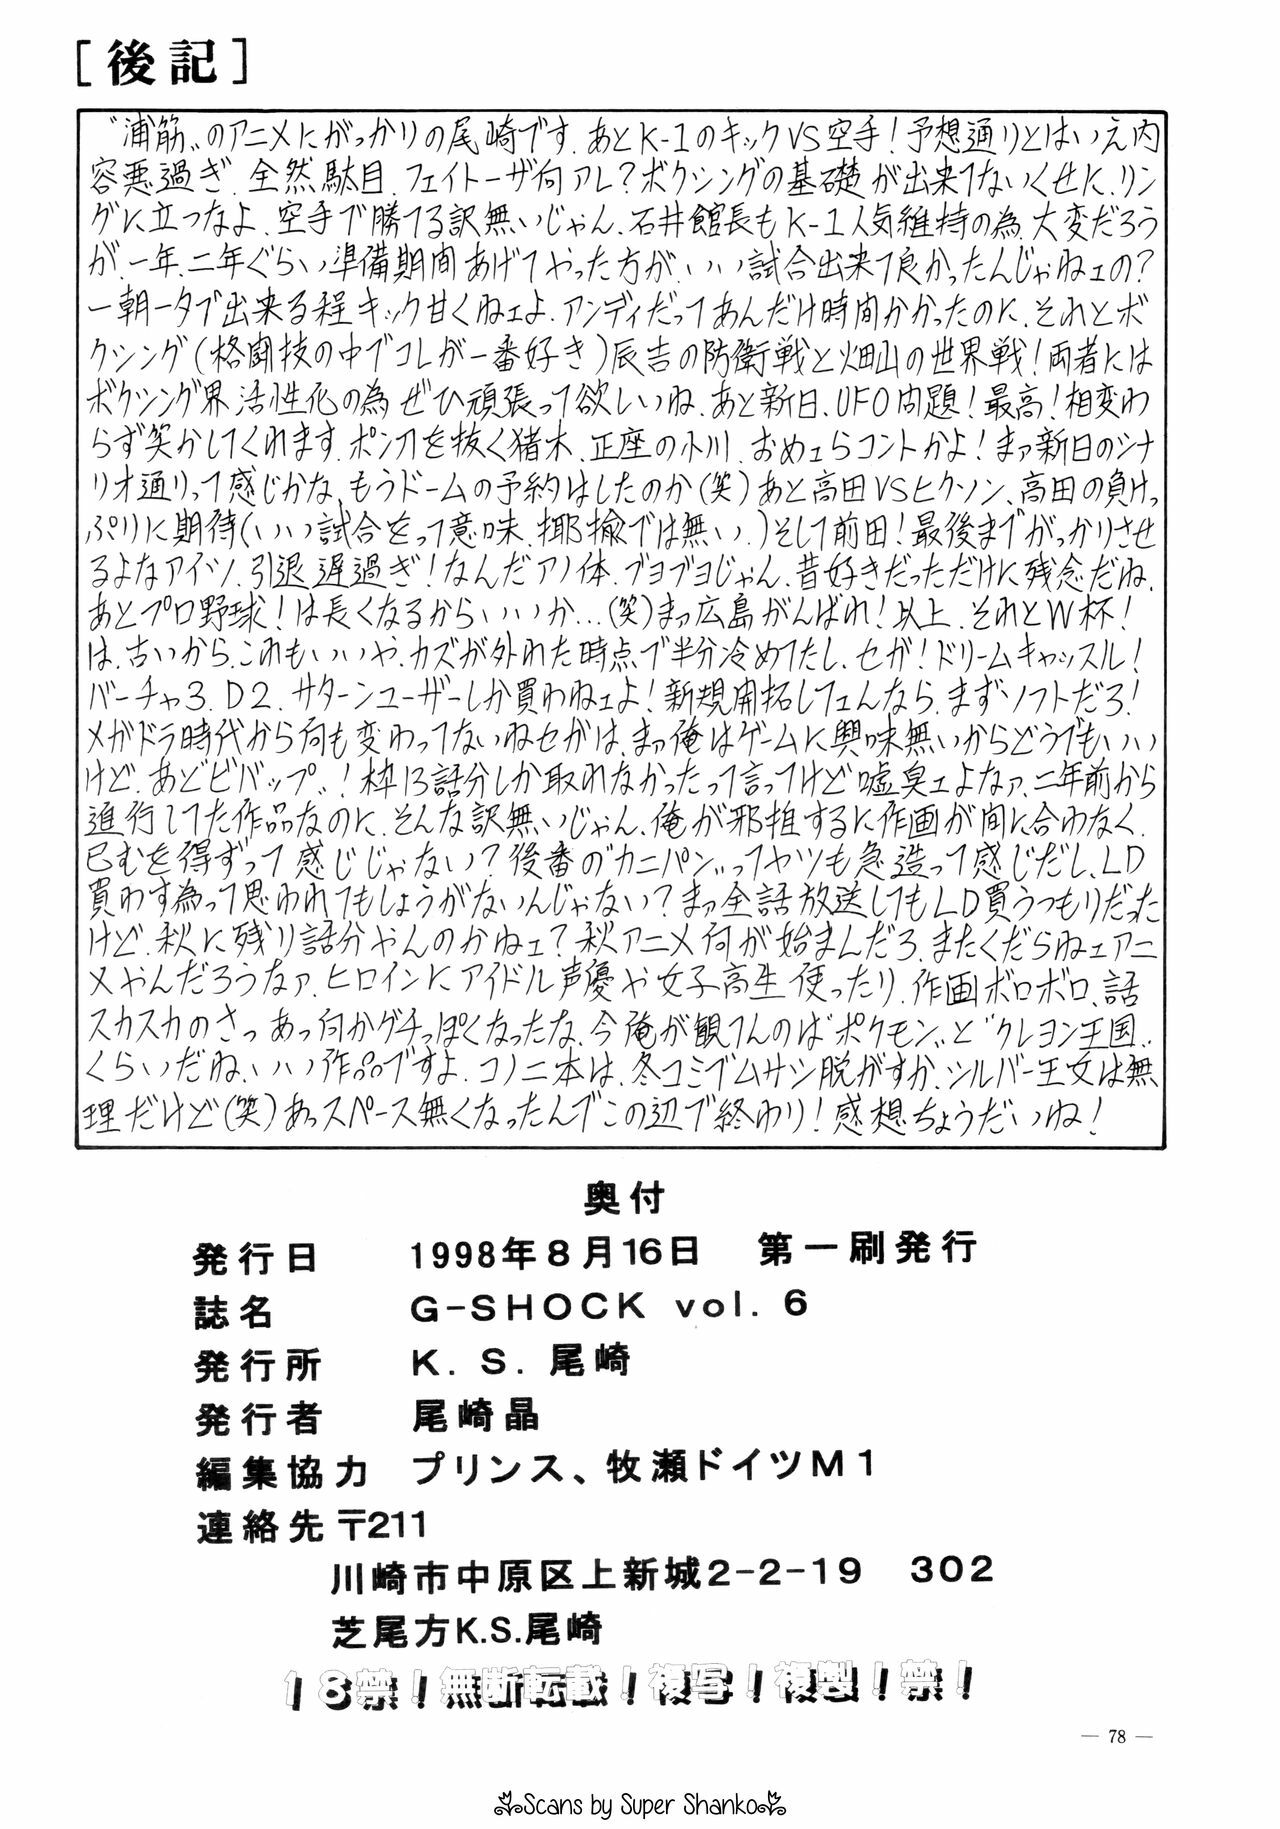 [後記]
“浦筋”のアニメにがっかりの尾崎です。あとK-1のキックVS空手!予想通りとはいえ内
容悪過ぎ、全然駄目、フェイトーザ何アレ?ボクシングの基礎が出来てないくせに、リン
グに立つなよ、空手で勝てる訳無いじゃん、石井館長もK-1人気維持の為、大変だろう
が、一年、二年ぐらい準備期間あげてやった方が、いい試合出来て良かったんじゃねェの?
一朝一夕で出来る程キック甘くねェよ、アンディだってあんだけ時間かかったのに、それとボ
クシング(格闘技の中でコレが一番好き)辰吉の防衛戦と畑山の世界戦!両者には
ボクシング界活性化の為ぜひ頑張って欲しいね、あと新日、UFO問題!最高!相変わ
らず笑かしてくれます、ポン刀を抜く猪木、正座の小川、おめェらコントかよ!まァ新日のシナ
リオ通りって感じかな、もうドームの予約はしたのか(笑)あと高田VSヒクソン、高田の負けっ
ぷりに期待(いい試合をって意味、揶揄では無い。)そして前田!最後までがっかりさせ
るよなアイツ、引退遅過ぎ!なんだアノ体、ブヨブヨじゃん、昔好きだっただけに残念だね、
あとプロ野球!は長くなるからいいか…(笑)まァ広島がんばれ!以上、それとW杯!
は、古いから、これもいいや、カズが外れた時点で半分冷めてたし、セガ!ドリームキャッスル!
バーチャ3、D2、サターンユーザーしか買わねェよ!新規開拓してェんなら、まずソフトだろ!
メガドラ時代から何も変わってないねセガは、まァ俺はゲームに興味無いからどうでもいい
けど、あと“ビバップ”!枠13話分しか取れなかったって言ってけど嘘臭ェよなァ、二年前から
進行してた作品なのに、そんな訳無いじゃん、俺が邪推するに作画が間に合わなく、
已むを得ずって感じじゃない?後番の“カニパン”ってヤツも急造って感じだし、LD
買わす為って思われてもしょうがないんじゃない?まァ全話放送してもLD買うつもりだった
けど、秋に残り話分やんのかねェ?秋アニメ何が始まんだろ、またくだらねェアニ
メやんだろうなァ、ヒロインにアイドル声優や女子高生使ったり、作画ボロボロ、話
スカスカのさっ、あっ何かグチっぽくなったな、今俺が観てんのは“ポケモン”と“クレヨン王国”
くらいだね、いい作品ですよ、コノ二本は、冬コミでムサシ脱がすか、シルバー王女は無
理だけど(笑)あっスペース無くなったんでこの辺で終わり!感想ちょうだいね!
奥付
発行日 1998年8月16日 第一刷発行
誌名 G-SHOCK vol. 6
発行所 K. S. 尾崎
発行者 尾崎晶
編集協力 プリンス、牧瀬ドイツM1
連絡先 〒211
川崎市中原区上新城2-2-19 302
芝尾方K.S.尾崎
18禁!無断転載!複写!複製!禁!
— 78 —
Scans by Super Shanko